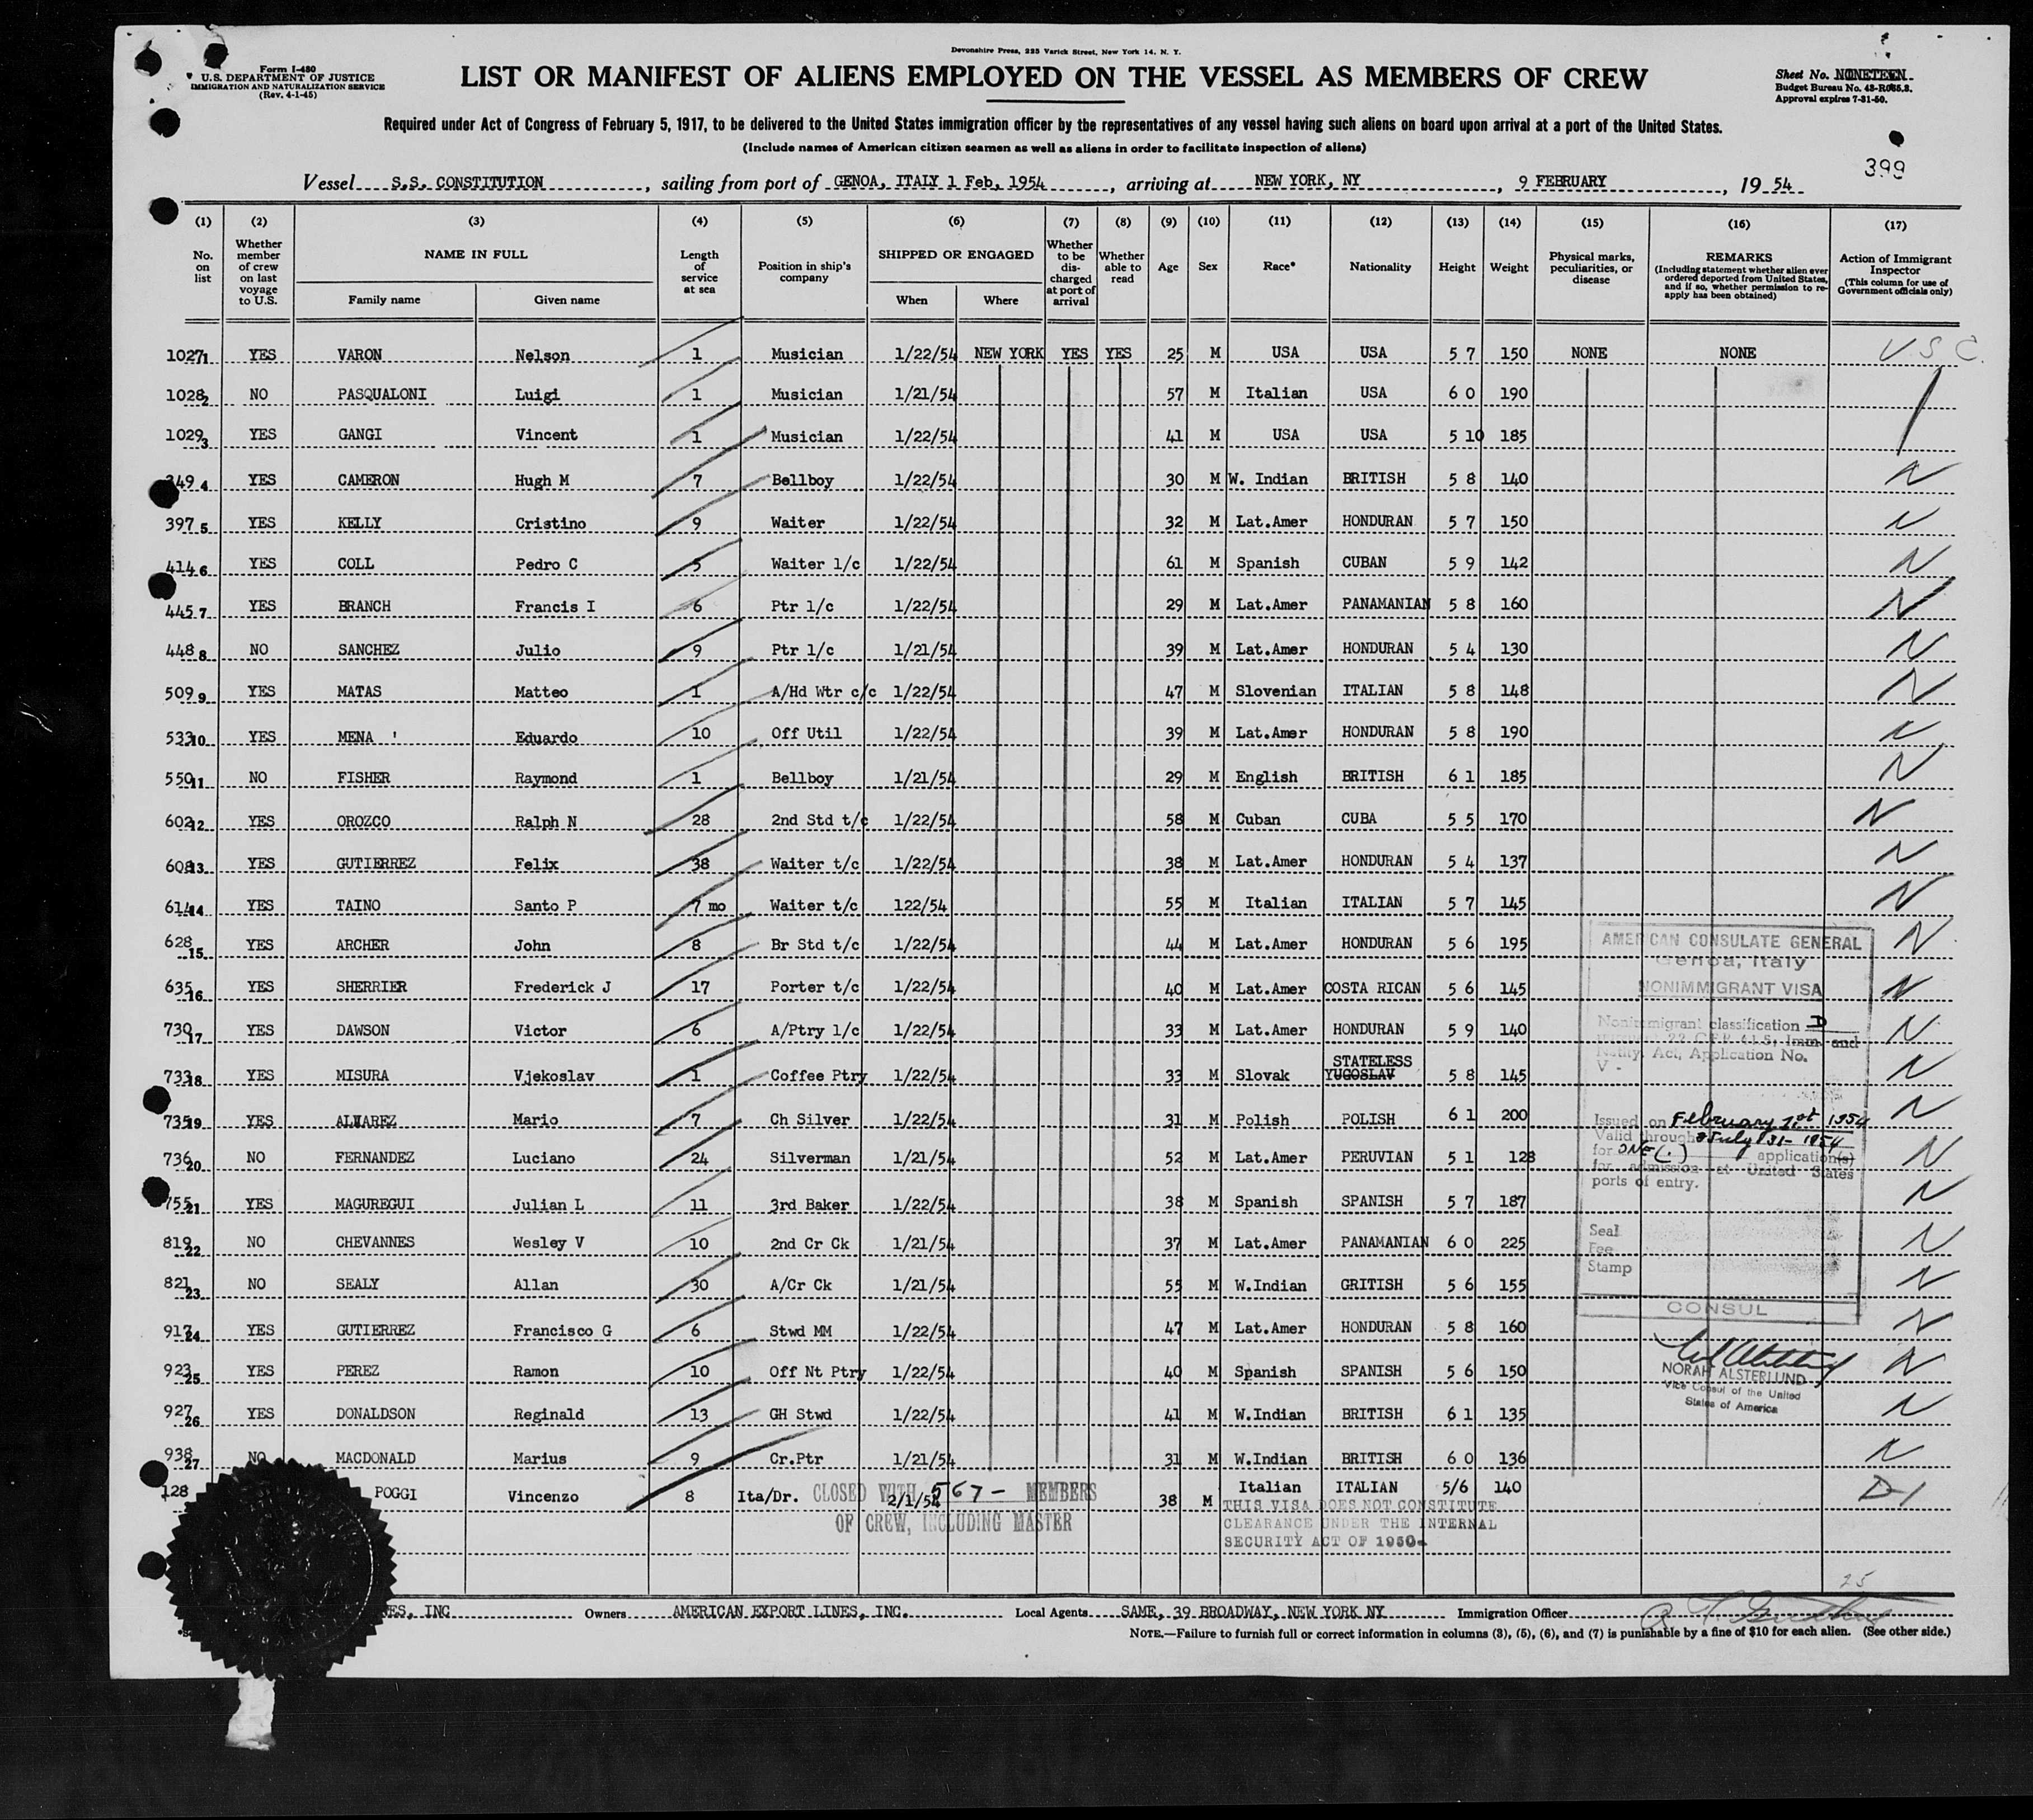 Devonshire Press, 225 Varick Street, New York 14, N. Y.
Form I-480
U.S. DEPARTMENT OF JUSTICE
IMMIGRATION AND NATURALIZATION SERVICE
(Rev. 4-1-45)
LIST OR MANIFEST OF ALIENS EMPLOYED ON THE VESSEL AS MEMBERS OF CREW
Sheet No.
Budget Bureau No. 43-R065.3.
Approval expires 7-31-50.
Required under Act of Congress of February 5, 1917, to be delivered to the United States immigration officer by the representatives of any vessel having such aliens on board upon arrival at a port of the United States.
(Include names of American citizen seamen as well as aliens in order to facilitate inspection of aliens)
399
Vessel S.S. CONSTITUTION, sailing from port of GENOA, ITALY 1 Feb, 1954, arriving at NEW YORK, NY, 9 FEBRUARY, 19 54
(1) (2) (3) (4) (5) (6) (7) (8) (9) (10) (11) (12) (13) (14) (15) (16) (17)
No. on list
Whether member of crew on last voyage to U.S.
NAME IN FULL
Family name
Given name
Length of service at sea
Position in ship's company
SHIPPED OR ENGAGED
When
Where
Whether to be discharged at port of arrival
Whether able to read
Age
Sex
Race*
Nationality
Height
Weight
Physical marks, peculiarities, or disease
REMARKS
(Including statement whether alien ever ordered deported from United States, and if so, whether permission to reapply has been obtained)
Action of Immigrant Inspector
(This column for use of Government officials only)
1027 1 YES VARON Nelson 1 Musician 1/22/54 NEW YORK YES YES 25 M USA USA 5 7 150 NONE NONE U.S.C.
1028 2 NO PASQUALONI Luigi 1 Musician 1/21/54 57 M Italian USA 6 0 190
1029 3 YES GANGI Vincent 1 Musician 1/22/54 41 M USA USA 5 10 185
349 4 YES CAMERON Hugh M 7 Bellboy 1/22/54 30 M W. Indian BRITISH 5 8 140 N
397 5 YES KELLY Cristino 9 Waiter 1/22/54 32 M Lat.Amer HONDURAN 5 7 150 N
414 6 YES COLL Pedro C 5 Waiter 1/c 1/22/54 61 M Spanish CUBAN 5 9 142 N
445 7 YES BRANCH Francis I 6 Ptr 1/c 1/22/54 29 M Lat.Amer PANAMANIAN 5 8 160 N
448 8 NO SANCHEZ Julio 9 Ptr 1/c 1/21/54 39 M Lat.Amer HONDURAN 5 4 130 N
509 9 YES MATAS Matteo 1 A/Hd Wtr c/c 1/22/54 47 M Slovenian ITALIAN 5 8 148 N
533 10 YES MENA ' Eduardo 10 Off Util 1/22/54 39 M Lat.Amer HONDURAN 5 8 190 N
550 11 NO FISHER Raymond 1 Bellboy 1/21/54 29 M English BRITISH 6 1 185 N
602 12 YES OROZCO Ralph N 28 2nd Std t/c 1/22/54 58 M Cuban CUBA 5 5 170 N
608 13 YES GUTIERREZ Felix 38 Waiter t/c 1/22/54 38 M Lat.Amer HONDURAN 5 4 137 N
614 14 YES TAINO Santo P 7 mo Waiter t/c 122/54 55 M Italian ITALIAN 5 7 145 N
628 15 YES ARCHER John 8 Br Std t/c 1/22/54 44 M Lat.Amer HONDURAN 5 6 195 N
635 16 YES SHERRIER Frederick J 17 Porter t/c 1/22/54 40 M Lat.Amer COSTA RICAN 5 6 145 N
730 17 YES DAWSON Victor 6 A/Ptry 1/c 1/22/54 33 M Lat.Amer HONDURAN 5 9 140 N
STATELESS
733 18 YES MISURA Vjekoslav 1 Coffee Ptry 1/22/54 33 M Slovak YUGOSLAV 5 8 145 N
735 19 YES Mario 7 Ch Silver 1/22/54 31 M Polish POLISH 6 1 200 N
736 20 NO FERNANDEZ Luciano 24 Silverman 1/21/54 52 M Lat.Amer PERUVIAN 5 1 128 N
755 21 YES MAGUREGUI Julian L 11 3rd Baker 1/22/54 38 M Spanish SPANISH 5 7 187 N
819 22 NO CHEVANNES Wesley V 10 2nd Cr Ck 1/21/54 37 M Lat.Amer PANAMANIAN 6 0 225 N
821 23 NO SEALY Allan 30 A/Cr Ck 1/21/54 55 M W.Indian GRITISH 5 6 155 N
917 24 YES GUTIERREZ Francisco G 6 Stwd MM 1/22/54 47 M Lat.Amer HONDURAN 5 8 160 N
923 25 YES PEREZ Ramon 10 Off Nt Ptry 1/22/54 40 M Spanish SPANISH 5 6 150 N
927 26 YES DONALDSON Reginald 13 GH Stwd 1/22/54 41 M W.Indian BRITISH 6 1 135 N
938 27 NO MACDONALD Marius 9 Cr.Ptr 1/21/54 31 M W.Indian BRITISH 6 0 136 N
128 POGGI Vincenzo 8 Ita/Dr. 2/1/54 38 M Italian ITALIAN 5/6 140 D-1
CLOSED WITH 567- MEMBERS
OF CREW, INCLUDING MASTER
THIS VISA DOES NOT CONSTITUTE
CLEARANCE UNDER THE INTERNAL
SECURITY ACT OF 1950.
AMERICAN CONSULATE GENERAL
Genoa, Italy
NONIMMIGRANT VISA
Nonimmigrant classification D
22 C.F.R. 41.5, Imm. and
Act, Application No.
V -
Issued on February 1st 1954
Valid through July 31- 1954
for ONE (.) application(s)
for admission at United States
ports of entry.
Seal
Fee
Stamp
CONSUL
NORAH ALSTERLUND
Vice Consul of the United
States of America
25
INC Owners AMERICAN EXPORT LINES, INC. Local Agents SAME, 39 BROADWAY, NEW YORK NY Immigration Officer
NOTE.—Failure to furnish full or correct information in columns (3), (5), (6), and (7) is punishable by a fine of $10 for each alien. (See other side.)